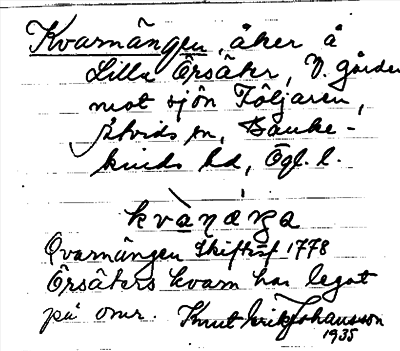 Kvarnängen, åker å
Lilla Örsäter, N. gården
mot sjön Följaren,
Åtvids sn, Banke-
kinds hd, Ögl. l.
kvanæŋa
Qvarnängen Skifteskt 1778
Örsäters kvarn har legat
på omr. Knut Erik Johansson
1935